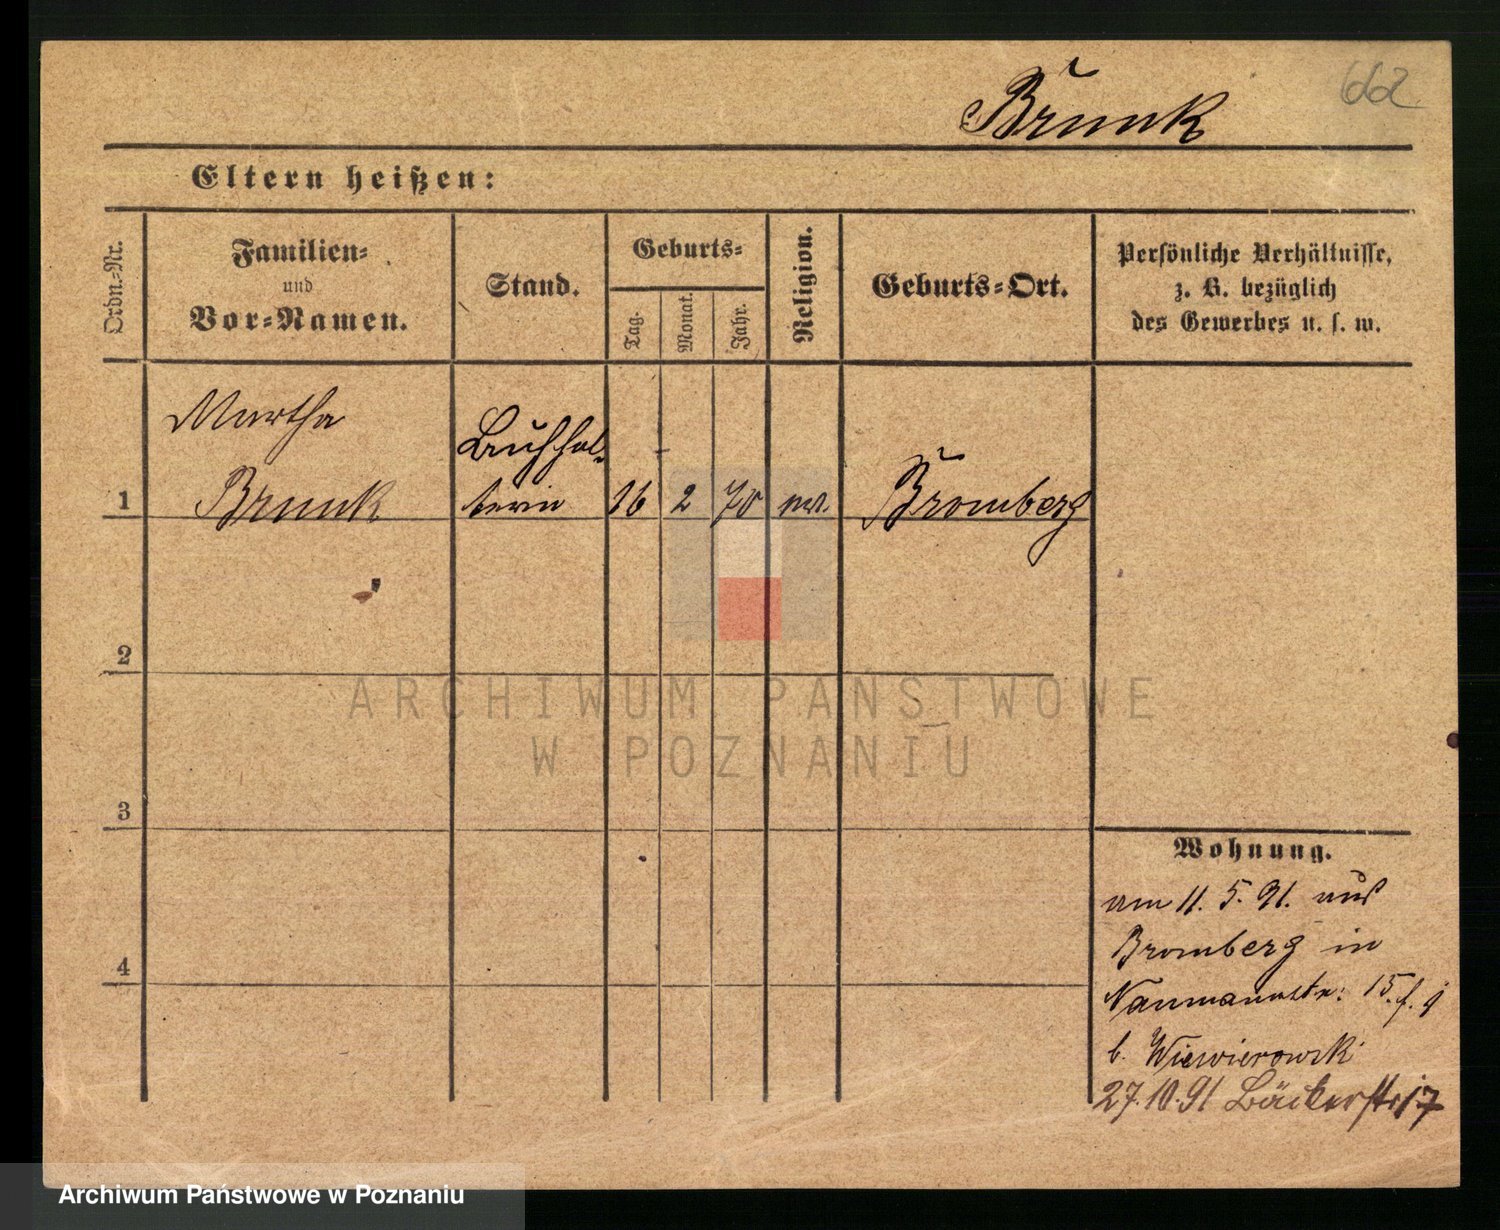 662
Brunk
Eltern heißen:
Ordn.-Nr.
Familien-
und
Vor-Namen.
Stand.
Geburts-
Tag.
Monat.
Jahr.
Religion.
Geburts-Ort.
Persönliche Verhältnisse,
z. B. bezüglich
des Gewerbes u. s. w.
Martha
Buchhal-
1 Brunk terin 16 2 70 ev. Bromberg
2
3
4
ARCHIWUM PAŃSTWOWE
W POZNANIU
Wohnung.
am 11. 5. 91. aus
Bromberg in
Naumannstr: 15.
b. Wiewierowski
27.10.91 Bäckerstr 17
Archiwum Państwowe w Poznaniu